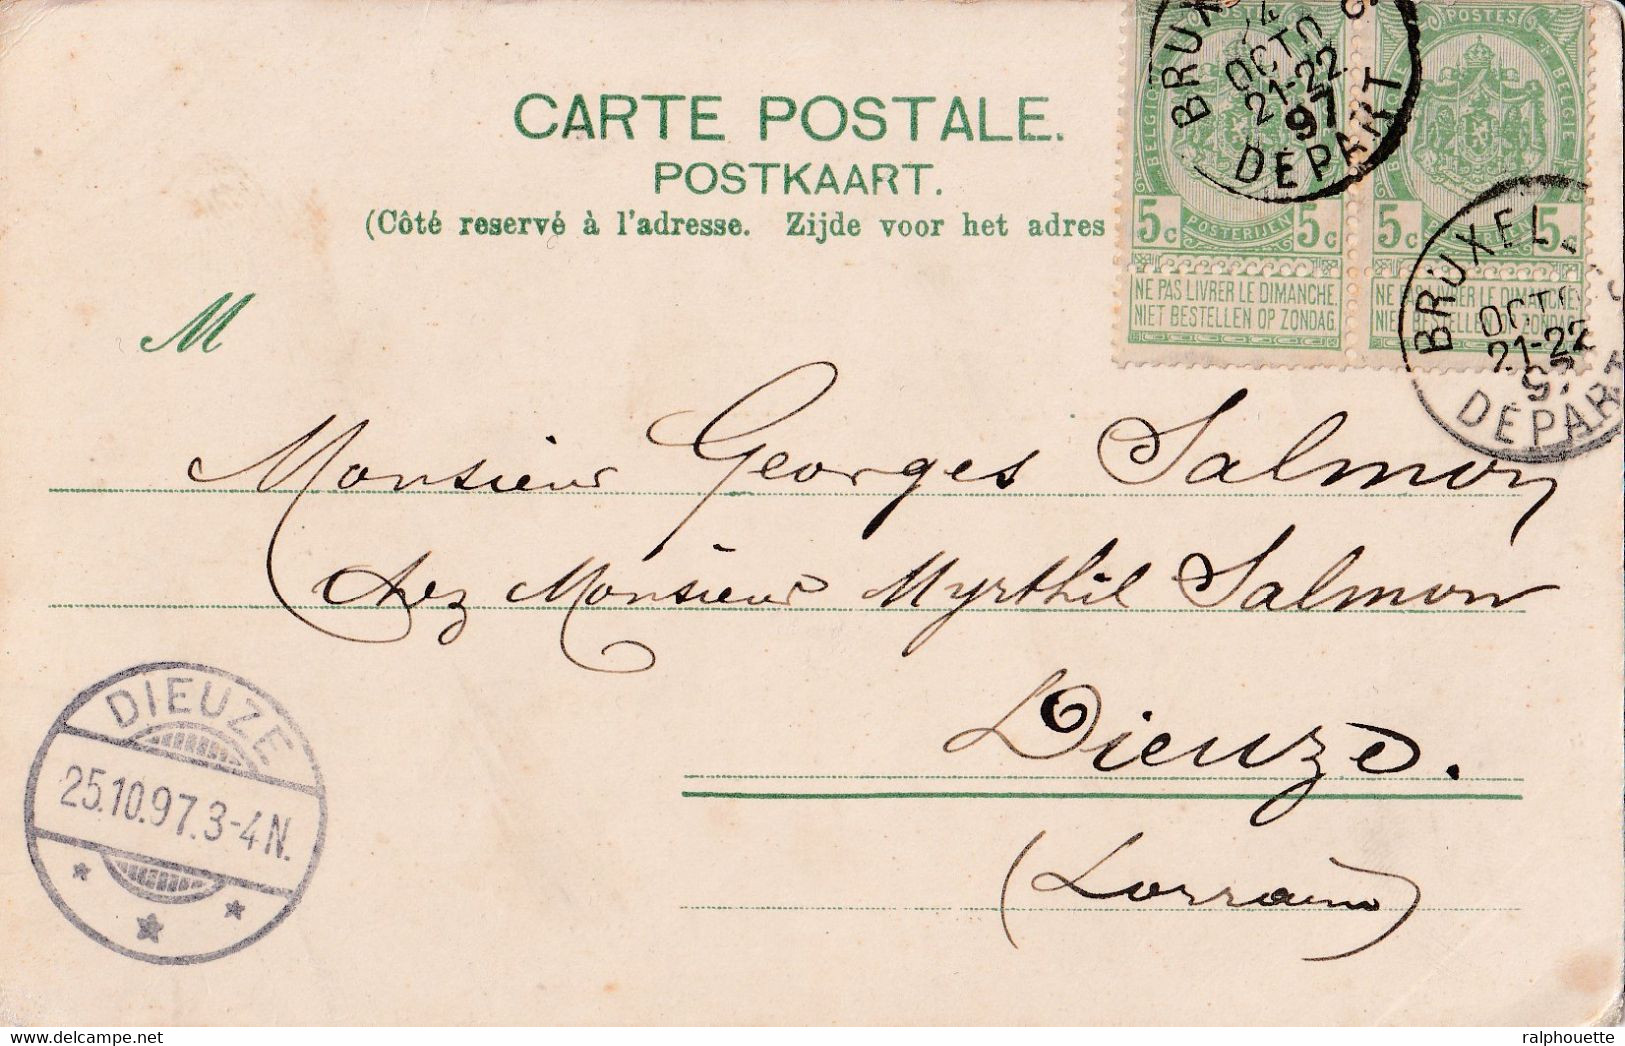 CARTE POSTALE.
POSTKAART.
(Côté reservé à l'adresse. Zijde voor het adres
POSTES
BELGIQUE
5c POSTERIJEN 5c
NE PAS LIVRER LE DIMANCHE.
NIET BESTELLEN OP ZONDAG.
POSTES
BELGIE
5c POSTERIJEN 5c
NE PAS LIVRER LE DIMANCHE
NIET BESTELLEN OP ZONDAG
BRUX
OCTO
21-22
97
DEPART
BRUXEL
OCT
21-22
97
DEPART
M
Monsieur Georges Salmon
chez Monsieur Myrthil Salmon
Dieuze.
(Lorraine)
DIEUZE
25.10.97.3-4N.
delcampe.net
ralphouette